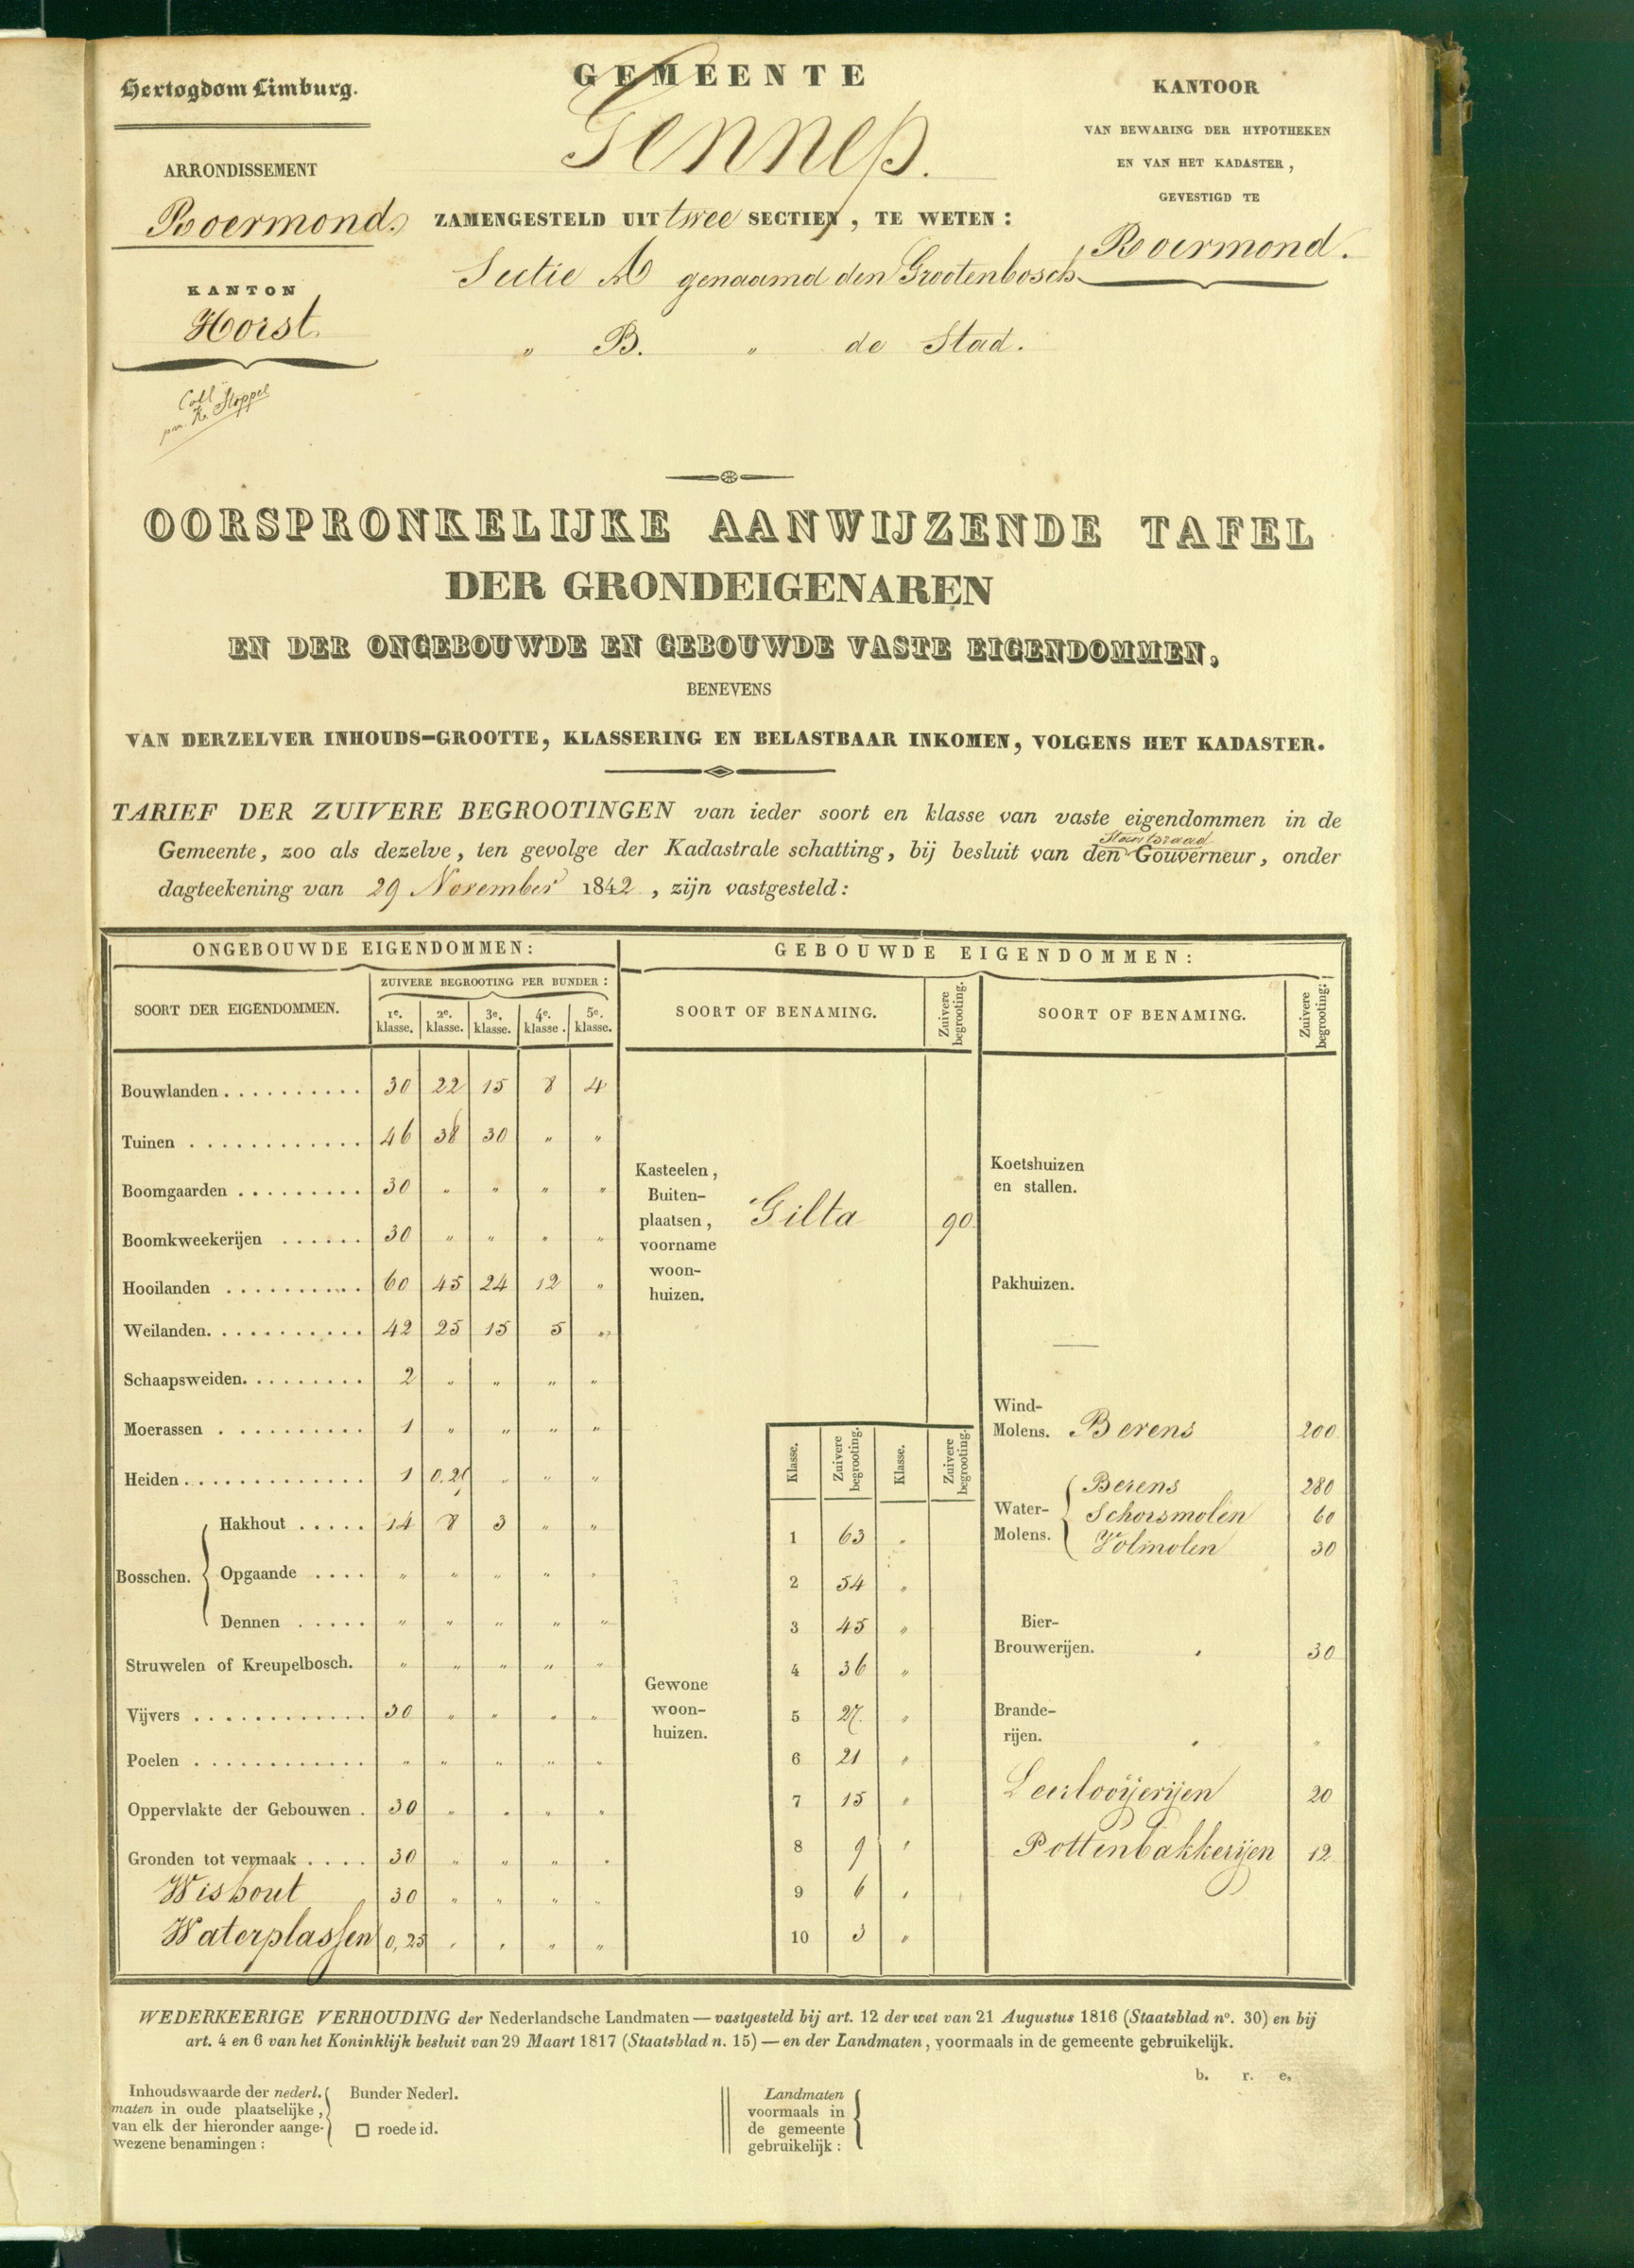 Hertogdom Limburg.
ARRONDISSEMENT
Roermond.
KANTON
Horst.
Coll
K. Stoppel
GEMEENTE
Gennep.
ZAMENGESTELD UIT twee SECTIEN, TE WETEN:
Sectie A genaamd den Grootenbosch
" B. " de Stad.
KANTOOR
VAN BEWARING DER HYPOTHEKEN
EN VAN HET KADASTER,
GEVESTIGD TE
Roermond.
OORSPRONKELIJKE AANWIJZENDE TAFEL
DER GRONDEIGENAREN
EN DER ONGEBOUWDE EN GEBOUWDE VASTE EIGENDOMMEN,
BENEVENS
VAN DERZELVER INHOUDS-GROOTTE, KLASSERING EN BELASTBAAR INKOMEN, VOLGENS HET KADASTER.
TARIEF DER ZUIVERE BEGROOTINGEN van ieder soort en klasse van vaste eigendommen in de
Staatsraad
Gemeente, zoo als dezelve, ten gevolge der Kadastrale schatting, bij besluit van den Gouverneur, onder
dagteekening van 29 November 1842, zijn vastgesteld:
ONGEBOUWDE EIGENDOMMEN:
SOORT DER EIGENDOMMEN.
ZUIVERE BEGROOTING PER BUNDER:
1e. klasse. 2e. klasse. 3e. klasse. 4e. klasse. 5e. klasse.
Bouwlanden . . . . . . . . . . 30 22 15 8 4
Tuinen . . . . . . . . . . . . 46 38 30 " "
Boomgaarden . . . . . . . . . 30 " " " "
Boomkweekerijen . . . . . . 30 " " " "
Hooilanden . . . . . . . . . . 60 45 24 12 "
Weilanden. . . . . . . . . . . 42 25 15 5 "
Schaapsweiden. . . . . . . . . 2 " " " "
Moerassen . . . . . . . . . . 1 " " " "
Heiden . . . . . . . . . . . . . 1 " " "
Bosschen.
Hakhout . . . . . 14 8 3 " "
Opgaande . . . . " " " " "
Dennen . . . . . " " " " "
Struwelen of Kreupelbosch. " " " " "
Vijvers . . . . . . . . . . . . 30 " " " "
Poelen . . . . . . . . . . . . " " " " "
Oppervlakte der Gebouwen . 30 " " " "
Gronden tot vermaak . . . . 30 " " " "
Wishout 30 " " " "
Waterplassen 0,25 " " " "
GEBOUWDE EIGENDOMMEN:
SOORT OF BENAMING.
Zuivere begrooting.
Kasteelen,
Buiten-
plaatsen,
voorname
woon-
huizen.
Gilta 90
Gewone
woon-
huizen.
Klasse. Zuivere begrooting. Klasse. Zuivere begrooting.
1 63 "
2 54 "
3 45 "
4 36 "
5 27. "
6 21 "
7 15 "
8 9 "
9 6 "
10 3 "
SOORT OF BENAMING.
Zuivere begrooting:
Koetshuizen
en stallen.
Pakhuizen.
Wind-
Molens. Berens 200
Water-
Molens.
Berens 280
Schorsmolen 60
Volmolen 30
Bier-
Brouwerijen. " 30
Brande-
rijen. " "
Leerlooijerijen 20
Pottenbakkerijen 12
WEDERKEERIGE VERHOUDING der Nederlandsche Landmaten — vastgesteld bij art. 12 der wet van 21 Augustus 1816 (Staatsblad no. 30) en bij
art. 4 en 6 van het Koninklijk besluit van 29 Maart 1817 (Staatsblad n. 15) — en der Landmaten, voormaals in de gemeente gebruikelijk.
b. r. e.
Inhoudswaarde der nederl.
maten in oude plaatselijke,
van elk der hieronder aange-
wezene benamingen:
Bunder Nederl.
□ roede id.
Landmaten
voormaals in
de gemeente
gebruikelijk: